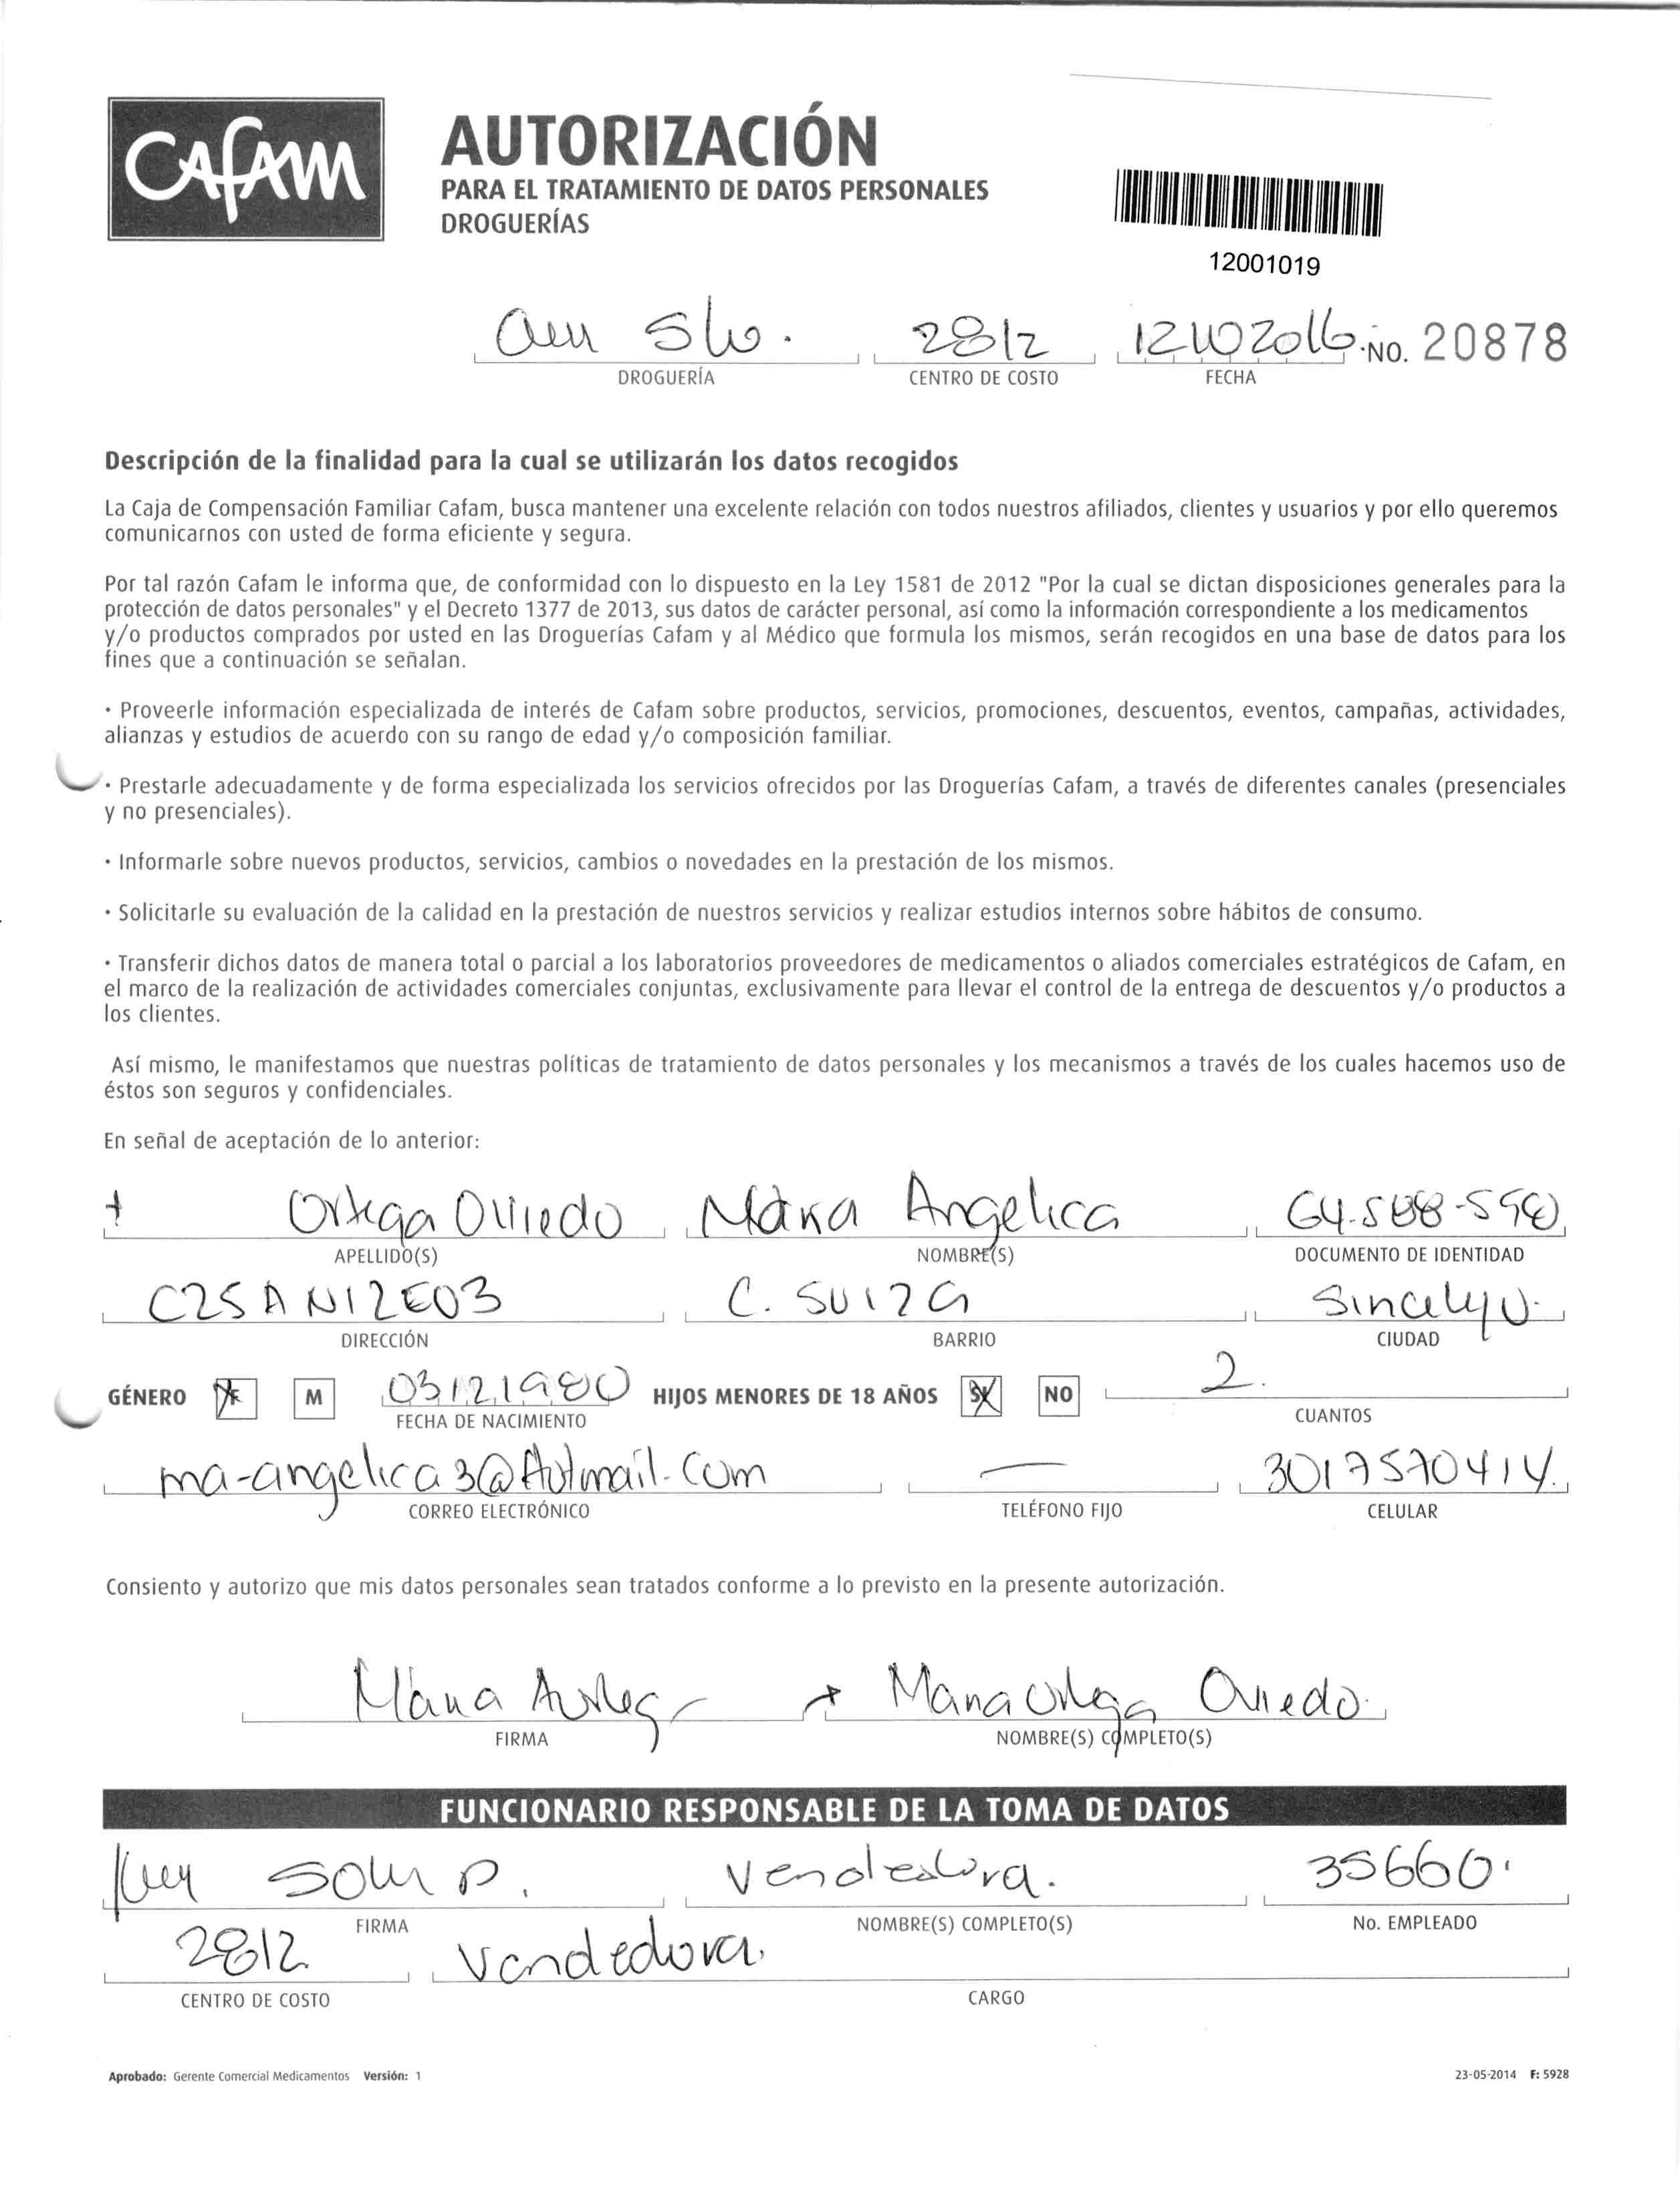 CAFAM
AUTORIZACIÓN
PARA EL TRATAMIENTO DE DATOS PERSONALES
DROGUERÍAS
12001019
2812 No. 20878
DROGUERÍA CENTRO DE COSTO FECHA
Descripción de la finalidad para la cual se utilizarán los datos recogidos
La Caja de Compensación Familiar Cafam, busca mantener una excelente relación con todos nuestros afiliados, clientes y usuarios y por ello queremos
comunicarnos con usted de forma eficiente y segura.
Por tal razón Cafam le informa que, de conformidad con lo dispuesto en la Ley 1581 de 2012 "Por la cual se dictan disposiciones generales para la
protección de datos personales" y el Decreto 1377 de 2013, sus datos de carácter personal, así como la información correspondiente a los medicamentos
y/o productos comprados por usted en las Droguerías Cafam y al Médico que formula los mismos, serán recogidos en una base de datos para los
fines que a continuación se señalan.
· Proveerle información especializada de interés de Cafam sobre productos, servicios, promociones, descuentos, eventos, campañas, actividades,
alianzas y estudios de acuerdo con su rango de edad y/o composición familiar.
· Prestarle adecuadamente y de forma especializada los servicios ofrecidos por las Droguerías Cafam, a través de diferentes canales (presenciales
y no presenciales).
· Informarle sobre nuevos productos, servicios, cambios o novedades en la prestación de los mismos.
· Solicitarle su evaluación de la calidad en la prestación de nuestros servicios y realizar estudios internos sobre hábitos de consumo.
· Transferir dichos datos de manera total o parcial a los laboratorios proveedores de medicamentos o aliados comerciales estratégicos de Cafam, en
el marco de la realización de actividades comerciales conjuntas, exclusivamente para llevar el control de la entrega de descuentos y/o productos a
los clientes.
Así mismo, le manifestamos que nuestras políticas de tratamiento de datos personales y los mecanismos a través de los cuales hacemos uso de
éstos son seguros y confidenciales.
En señal de aceptación de lo anterior:
Ortega Oviedo Maria Angelica
APELLIDO(S) NOMBRE(S) DOCUMENTO DE IDENTIDAD
C25A N12E03 C. SUIZA Sincelejo.
DIRECCIÓN BARRIO CIUDAD
GÉNERO F M 03121980 HIJOS MENORES DE 18 AÑOS SI NO 2.
FECHA DE NACIMIENTO CUANTOS
ma-angelica3@Hotmail.com — 3017570414.
CORREO ELECTRÓNICO TELÉFONO FIJO CELULAR
Consiento y autorizo que mis datos personales sean tratados conforme a lo previsto en la presente autorización.
Maria Maria Ortega Oviedo.
FIRMA NOMBRE(S) COMPLETO(S)
FUNCIONARIO RESPONSABLE DE LA TOMA DE DATOS
Vendedora. 35660.
FIRMA NOMBRE(S) COMPLETO(S) No. EMPLEADO
2812 Vendedora.
CENTRO DE COSTO CARGO
Aprobado: Gerente Comercial Medicamentos Versión: 1 23-05-2014 F: 5928